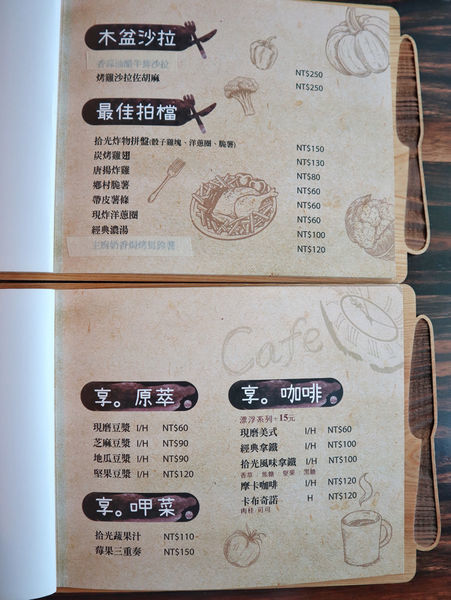 木盆沙拉
香蒜油醋牛蒡沙拉 NT$250
烤雞沙拉佐胡麻 NT$250
最佳拍檔
拾光炸物拼盤(骰子雞塊、洋蔥圈、脆薯) NT$150
炭烤雞翅 NT$130
唐揚炸雞 NT$80
鄉村脆薯 NT$60
帶皮薯條 NT$60
現炸洋蔥圈 NT$60
經典濃湯 NT$100
NT$120
Cafe
享。原萃
現磨豆漿 I/H NT$60
芝麻豆漿 I/H NT$90
地瓜豆漿 I/H NT$90
堅果豆漿 I/H NT$120
享。呷菜
拾光蔬果汁 NT$110
莓果三重奏 NT$150
享。咖啡
漂浮系列+15元
現磨美式 I/H NT$60
經典拿鐵 I/H NT$100
拾光風味拿鐵 I/H NT$100
香草 焦糖 堅果 黑糖
摩卡咖啡 I/H NT$120
卡布奇諾 H NT$120
肉桂 可可